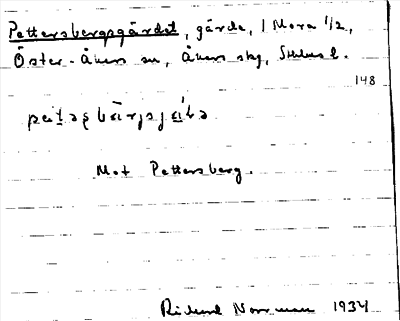 Pettersbergsgärdet, gärde, 1 Mora 1/2,
Öster-Åkers sn, Åkers skg, Sthlms l.
148
Mot Pettersberg.
Rickard Norrman 1934